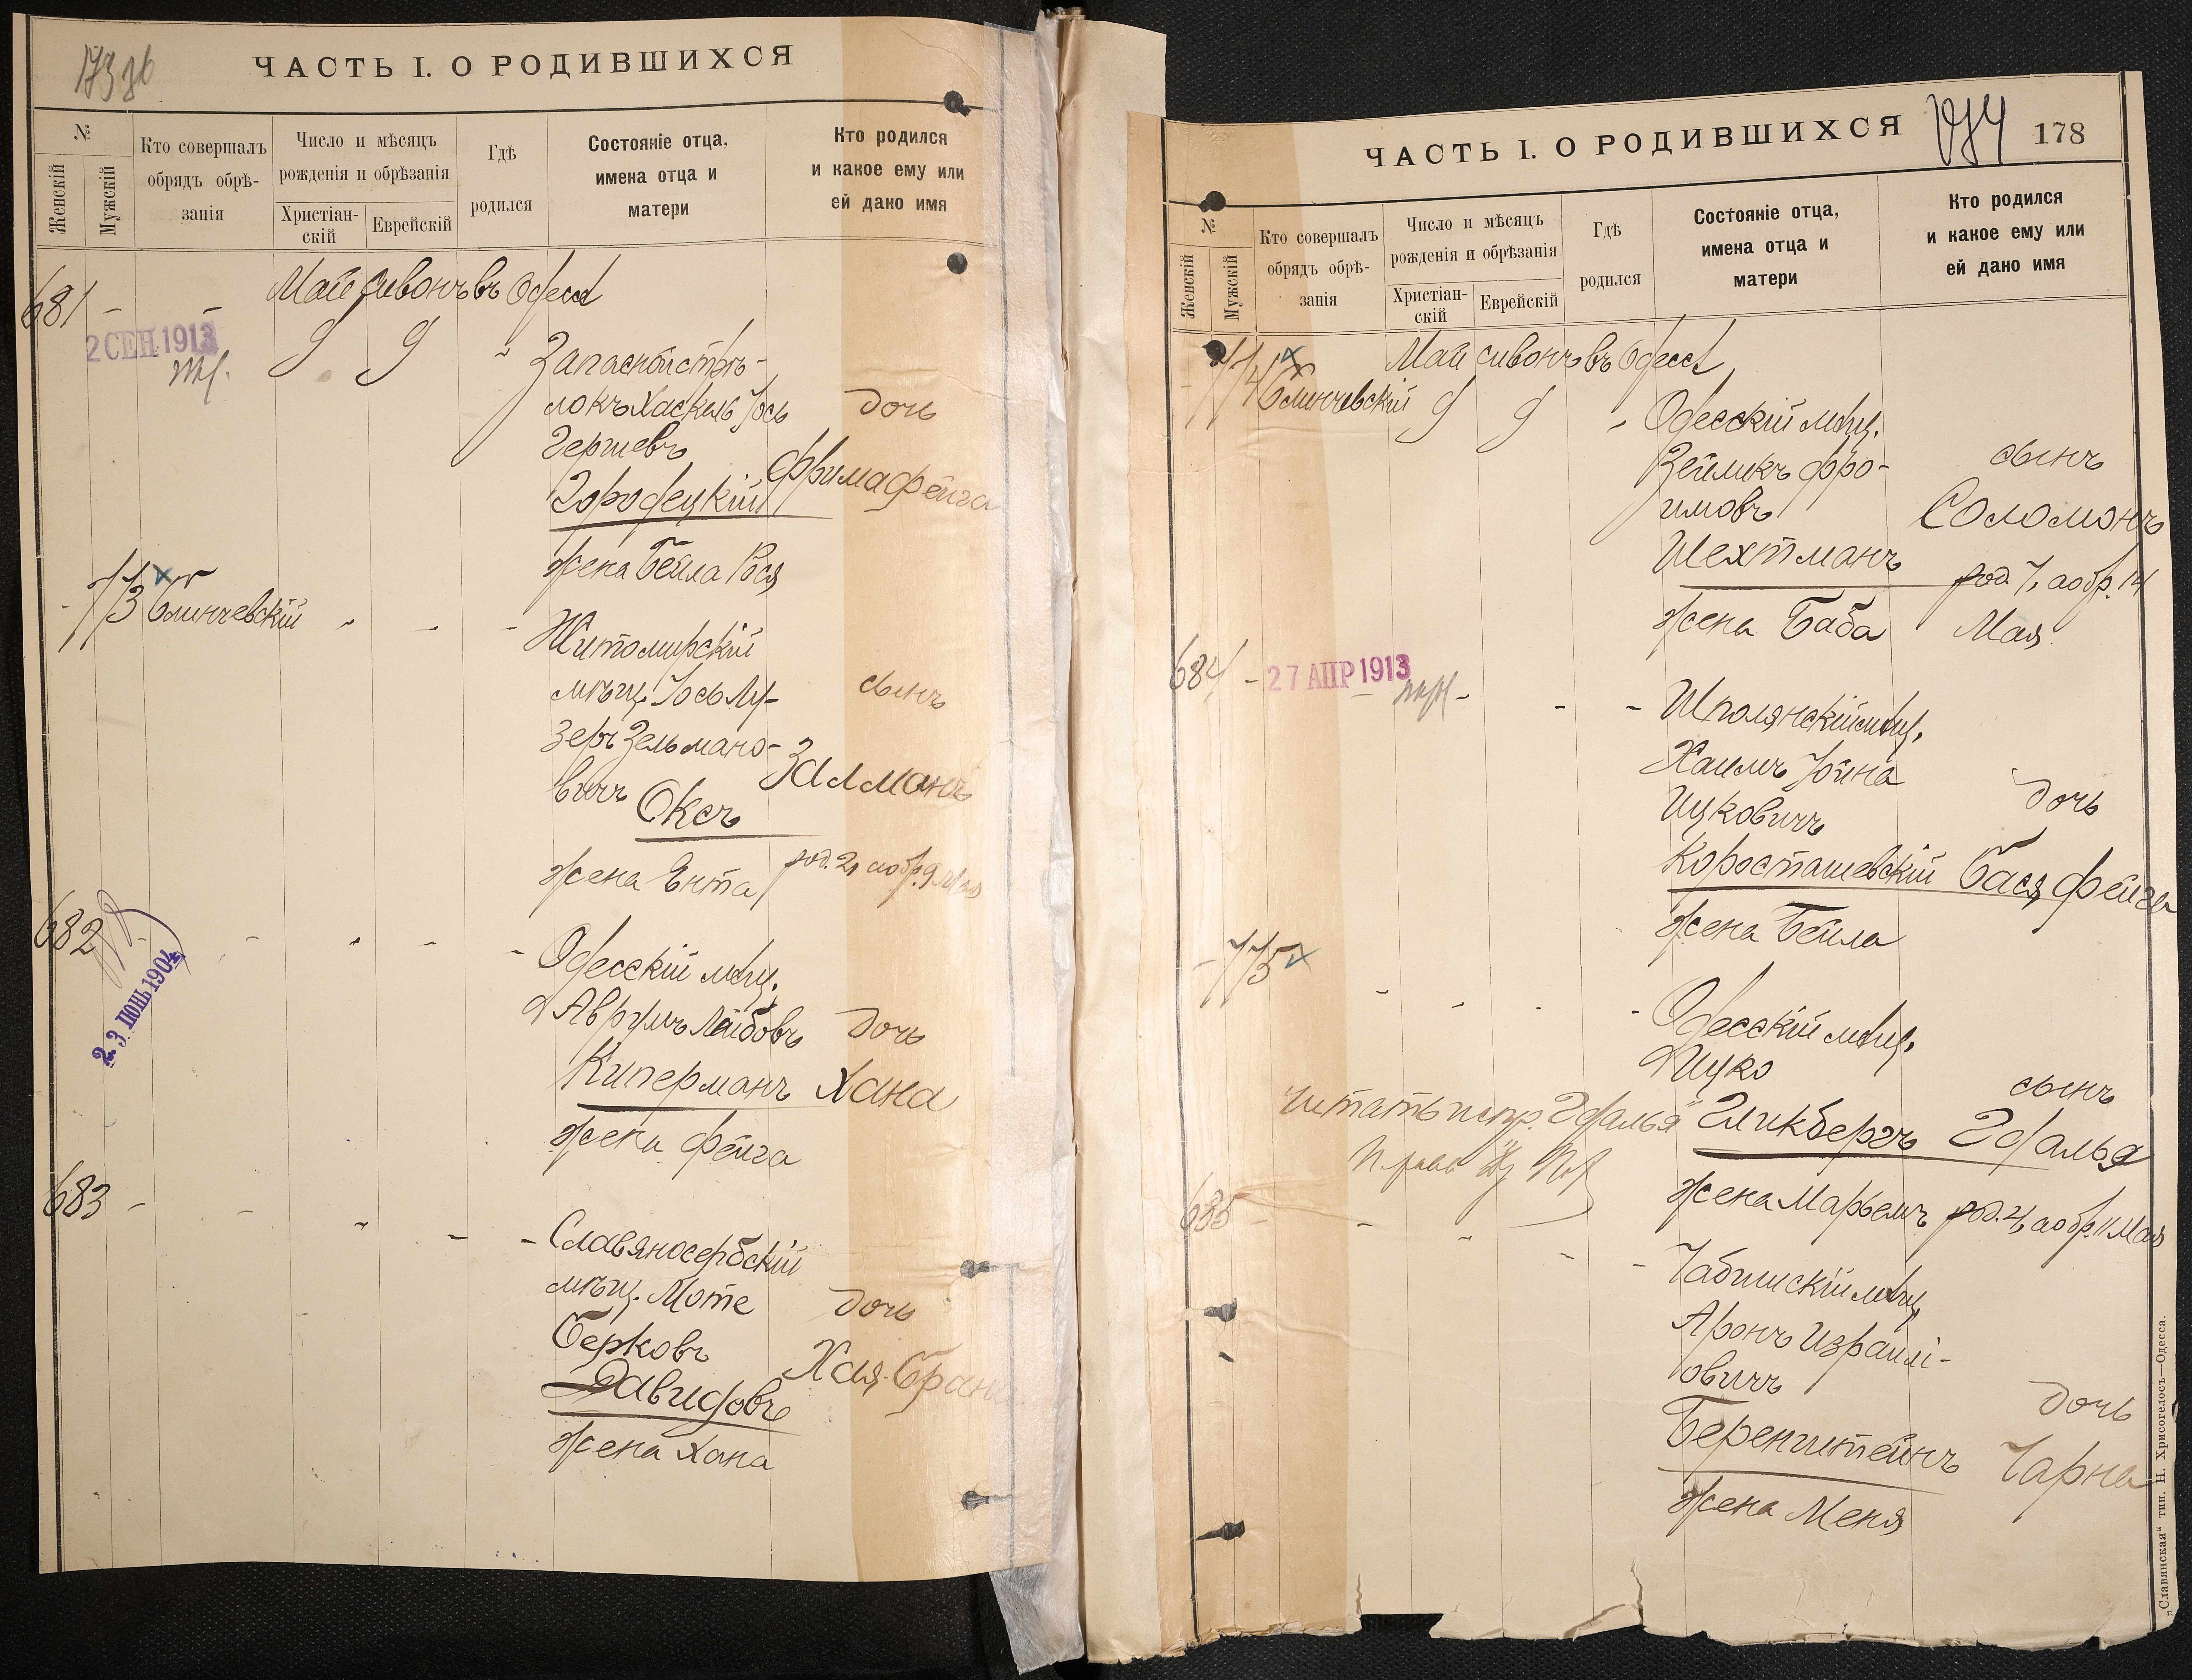 ЧАСТЬ I. О РОДИВШИХСЯ
№
Женскій
Мужскій
Кто совершалъ
обрядъ обрѣ-
занія
Число и мѣсяцъ
рожденія и обрѣзанія
Христіан-
скій
Еврейскій
Гдѣ
родился
Состояніе отца,
имена отца и
матери
Кто родился
и какое ему или
ей дано имя
681 - - Май Сивонъ въ Одессѣ
2 СЕН 1913
9 9 Запасной стрѣ-
локъ Хаскель Іось дочь
Гершевъ
Городецкій Фрима Фейга
жена Бейла Рося
- 773 Блинчевскій
Житомирскій
мѣщ. Іось Лу- сынъ
зеръ Зельмано-
вичъ Оксъ Залманъ
жена Ента род. 2, а обр. 9 Мая
682
23 ІЮНЬ 1904
Одесскій мѣщ.
Аврумъ Лейбовъ дочь
Киперманъ Хана
жена Фейга
683 -
Славяносербскій
мѣщ. Моте дочь
Берковъ
Давидовъ Хая-Брана
жена Хана
ЧАСТЬ I. О РОДИВШИХСЯ
174 178
№
Женскій
Мужскій
Кто совершалъ
обрядъ обрѣ-
занія
Число и мѣсяцъ
рожденія и обрѣзанія
Христіан-
скій
Еврейскій
Гдѣ
родился
Состояніе отца,
имена отца и
матери
Кто родился
и какое ему или
ей дано имя
774 Май Сивонъ въ Одессѣ
Блинчевскій 9 9 Одесскій мѣщ.
Зейликъ Фро- сынъ
имовъ Соломонъ
Шехтманъ род. 7, а обр. 14
жена Баба Мая
684 - 27 АПР 1913
Шполянскій мѣщ.
Хаимъ Іойна
Ицковичъ дочь
Коросташевскій Бася Фейга
жена Бейла
- 775
Одесскій мѣщ.
Ицко сынъ
Читать испр. "Гдалья" Гликбергъ Гдалья
жена Марьемъ род. 4, а обр. 11 Мая
685 -
Чабишскій мѣщ.
Аронъ Израили-
овичъ дочь
Беренштейнъ Чарна
жена Меня
„Славянская“ тип. Н. Хрисогелосъ—Одесса.